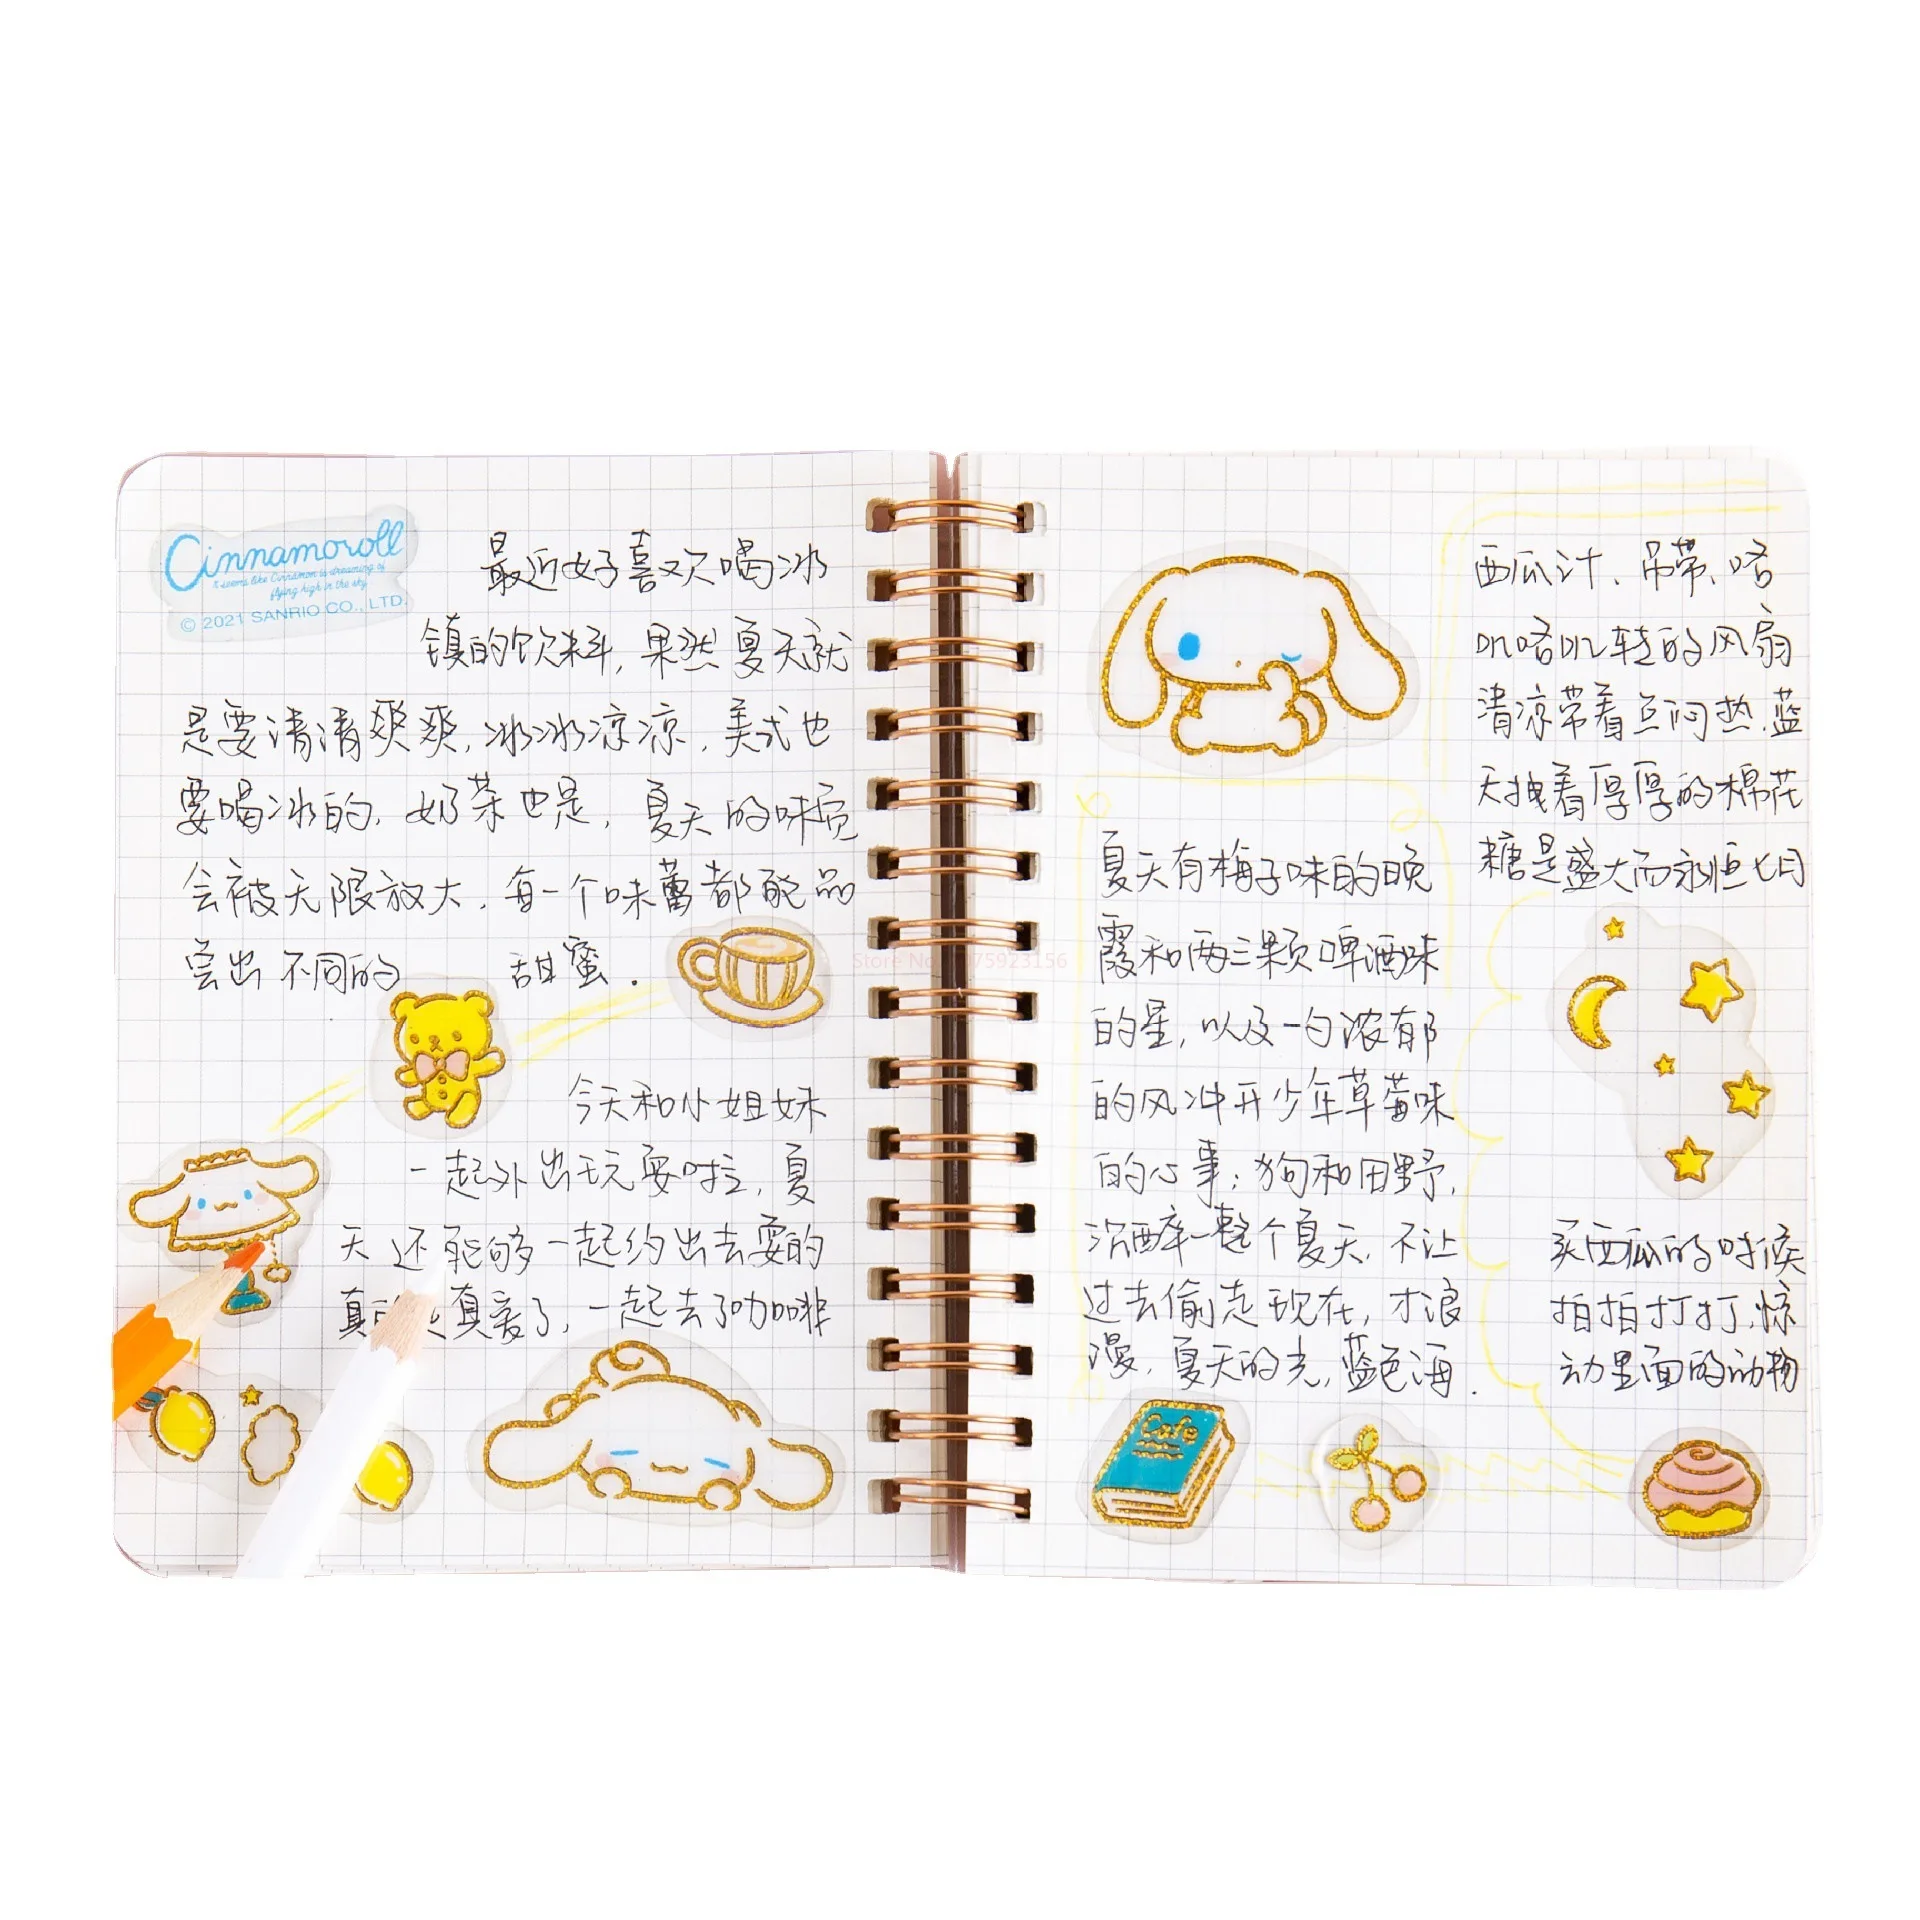 Cinnamoroll
It seems like Cinnamon is dreaming of
flying high in the sky
© 2021 SANRIO CO., LTD.
最近好喜欢喝冰
镇的饮料，果然夏天就
是要清清爽爽，冰冰凉凉，美式也
要喝冰的，奶茶也是，夏天的味觉
会被无限放大，每一个味蕾都能品
尝出不同的 甜蜜.
今天和小姐妹
一起外出玩耍啦，夏
天还能够一起约出去耍的
真 是真爱了，一起去了咖啡
夏天有梅子味的晚
霞和两三颗啤酒味
的星，以及一勺浓郁
的风冲开少年草莓味
的心事；狗和田野，
沉醉一整个夏天，不让
过去偷走现在，才浪
漫，夏天的光，蓝色海.
西瓜汁、吊带、咯
叽咯叽转的风扇
清凉带着点闷热，蓝
天拽着厚厚的棉花
糖是盛大而永恒七月
买西瓜的时候
拍拍打打，惊
动里面的动物
Cafe
Store No 75923156